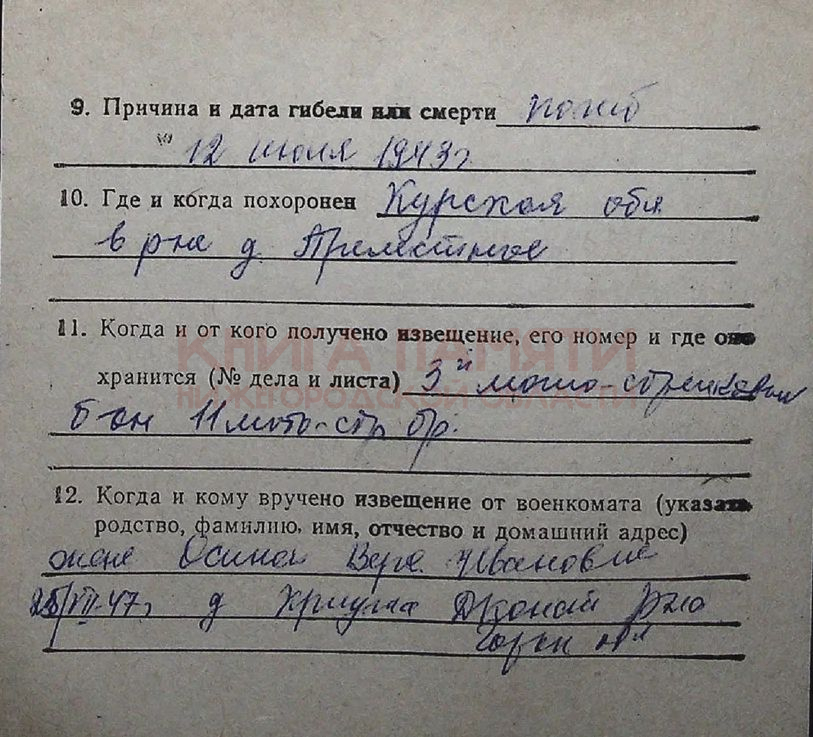 9. Причина и дата гибели или смерти погиб
12 июля 1943г
10. Где и когда похоронен Курская обл
в р-не д. Прелестное
11. Когда и от кого получено извещение, его номер и где оно
КНИГА ПАМЯТИ
хранится (№ дела и листа) 3й мото-стрелковый
НИЖЕГОРОДСКОЙ ОБЛАСТИ
б-он 11 мото-стр бр.
12. Когда и кому вручено извещение от военкомата (указать
родство, фамилию, имя, отчество и домашний адрес)
жене Осиной Вере Ивановне
/VII-47г д
Горьк обл